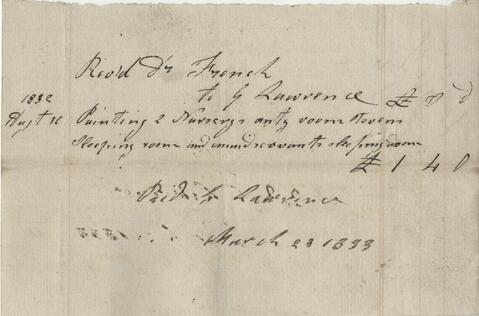 Revd Dr French
to G Lawrence £ s d
1832
Augt 16 Painting 2 Nurserys anty room
Sleeping room and servants sleeping room
£ 1 4 0
G Lawrence
March 23 1833